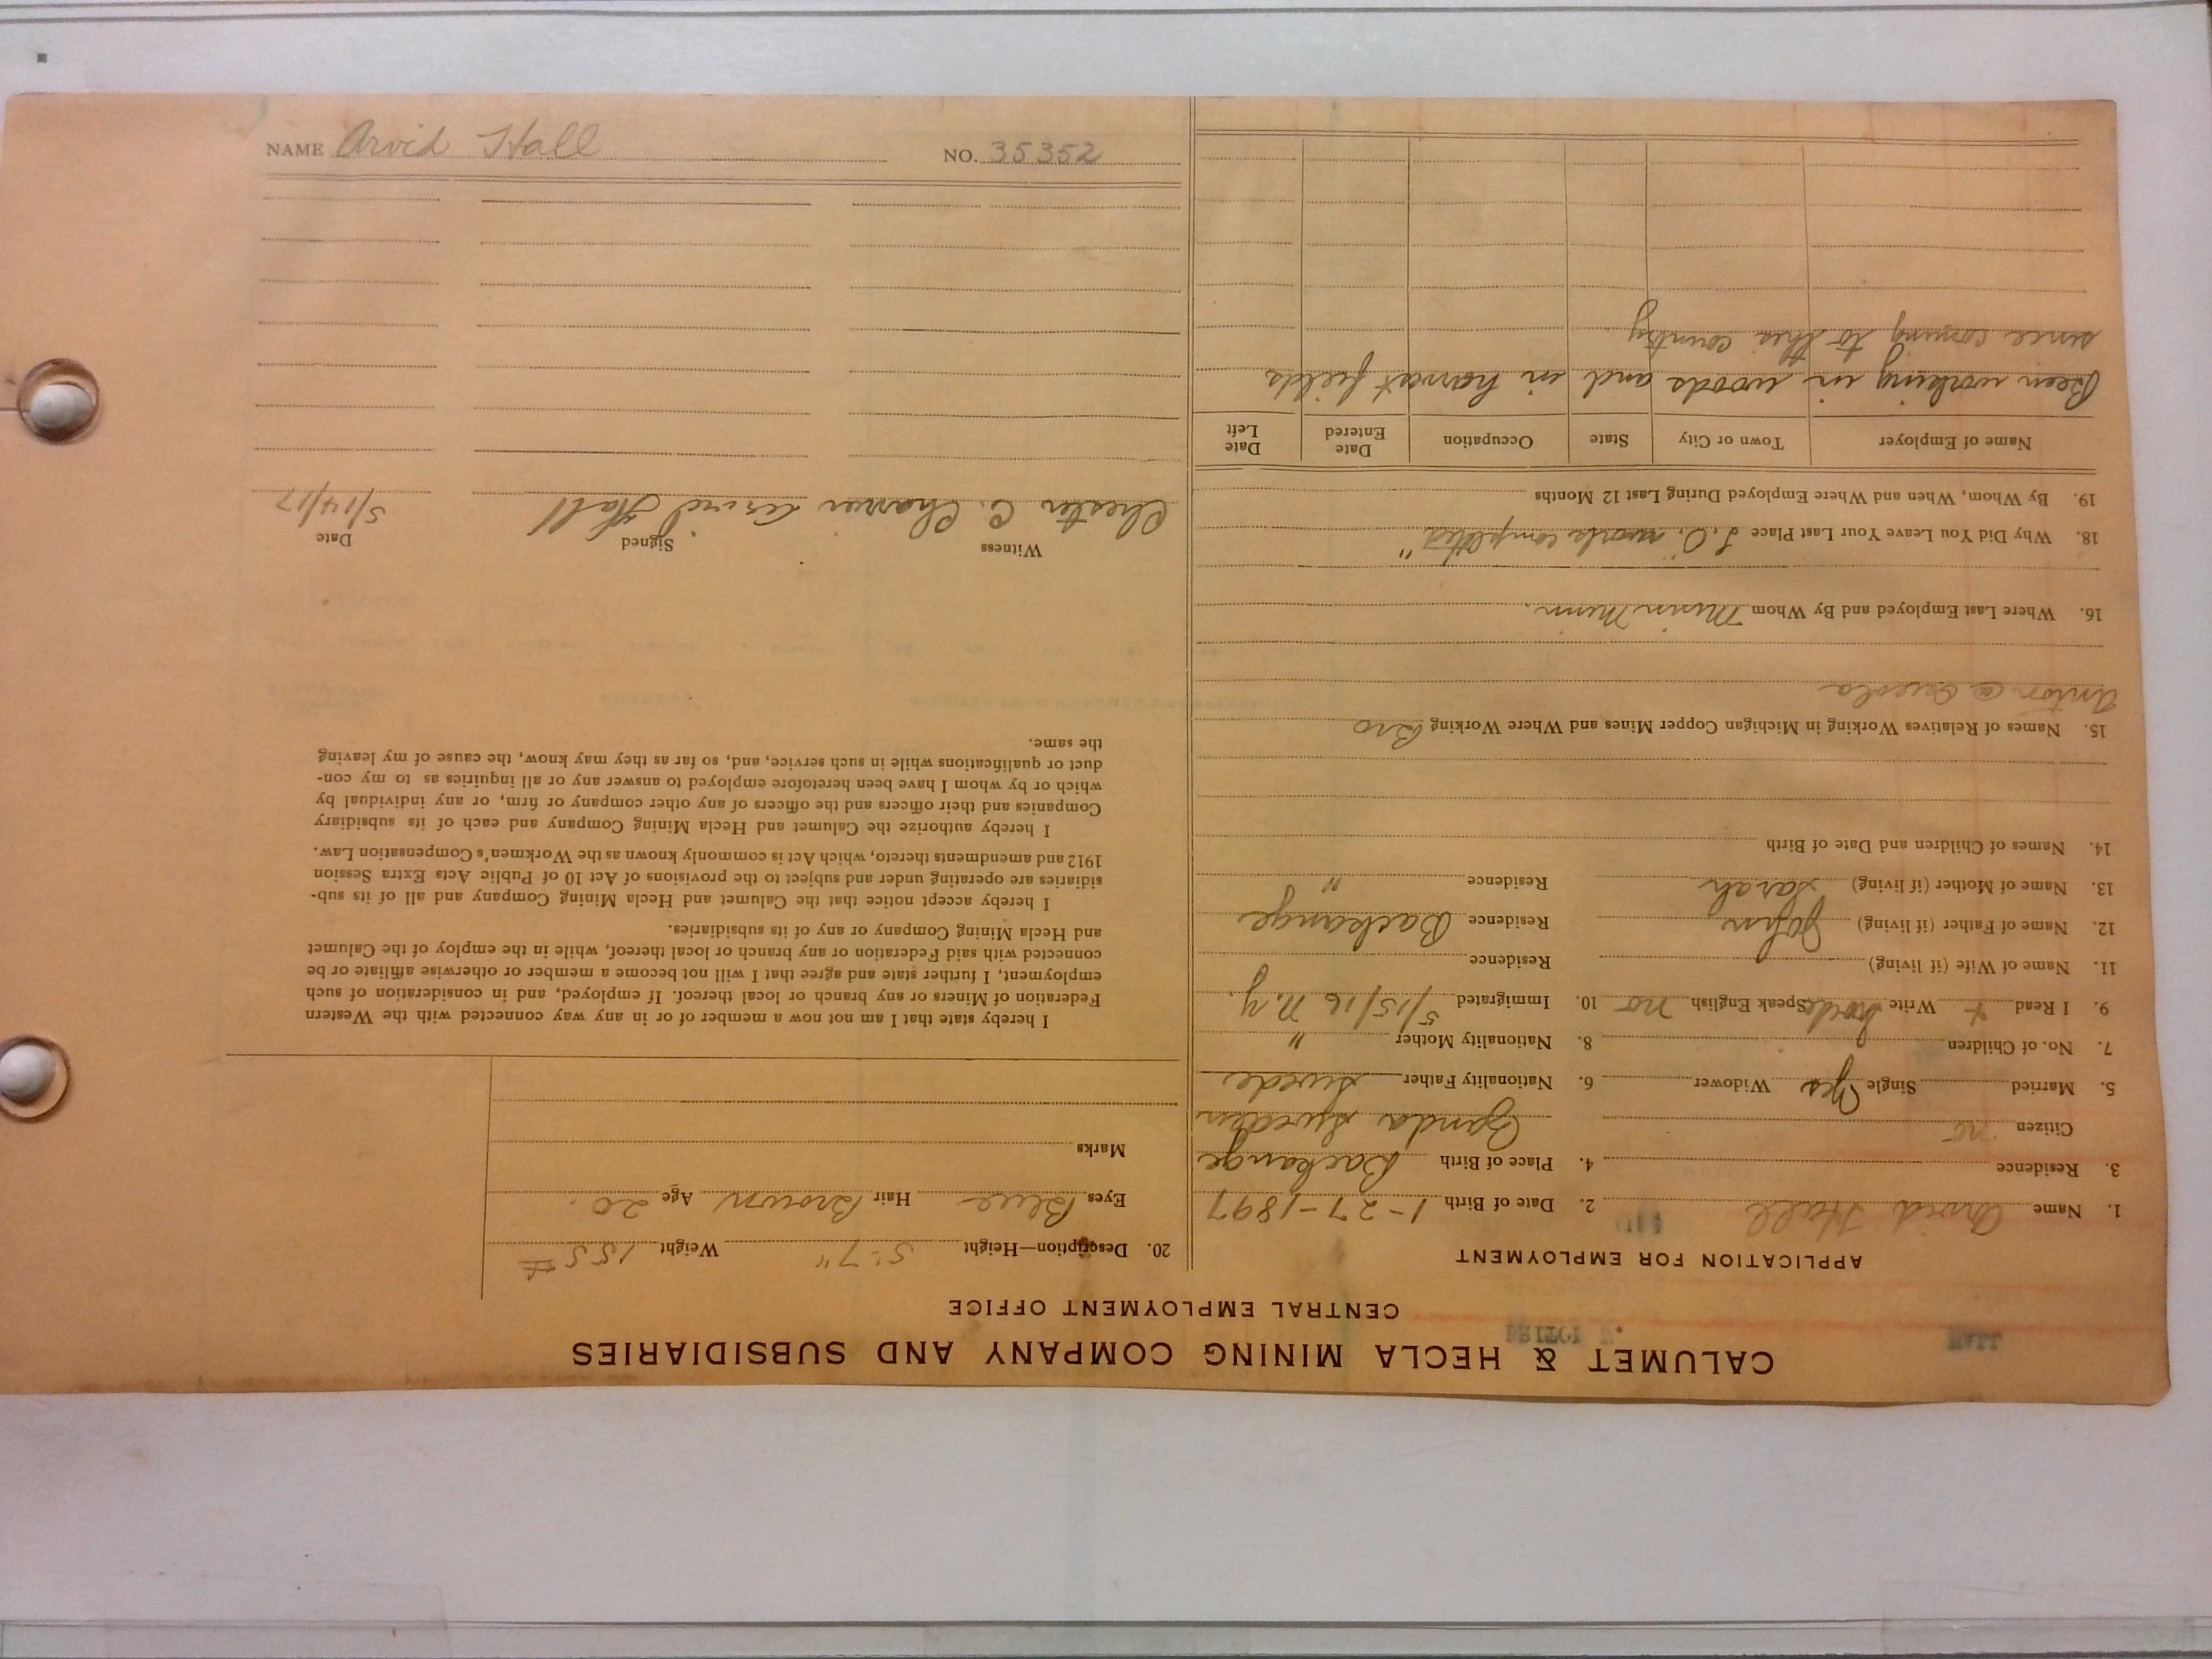 CALUMET & HECLA MINING COMPANY AND SUBSIDIARIES
CENTRAL EMPLOYMENT OFFICE
APPLICATION FOR EMPLOYMENT
1. Name Arvid Hall 2. Date of Birth 1-27-1897
3. Residence 4. Place of Birth Backange
Citizen no Sweden
5. Married Single Yes Widower 6. Nationality Father Swede
7. No. of Children 8. Nationality Mother "
9. I Read + Write Swede Speak English no 10. Immigrated 5/15/16 N.Y.
11. Name of Wife (if living) Residence
12. Name of Father (if living) John Residence Backange
13. Name of Mother (if living) Sarah Residence "
14. Names of Children and Date of Birth
15. Names of Relatives Working in Michigan Copper Mines and Where Working Bro
Anton @ Osceola
16. Where Last Employed and By Whom Minn
18. Why Did You Leave Your Last Place work completed"
19. By Whom, When and Where Employed During Last 12 Months
Name of Employer Town or City State Occupation Date Entered Date Left
Been working in woods and in harvest fields
since coming to this country
20. Description—Height 5-7" Weight 155#
Eyes Blue Hair Brown Age 20.
Marks
I hereby state that I am not now a member of or in any way connected with the Western
Federation of Miners or any branch or local thereof. If employed, and in consideration of such
employment, I further state and agree that I will not become a member or otherwise affiliate or be
connected with said Federation or any branch or local thereof, while in the employ of the Calumet
and Hecla Mining Company or any of its subsidiaries.
I hereby accept notice that the Calumet and Hecla Mining Company and all of its sub-
sidiaries are operating under and subject to the provisions of Act 10 of Public Acts Extra Session
1912 and amendments thereto, which Act is commonly known as the Workmen's Compensation Law.
I hereby authorize the Calumet and Hecla Mining Company and each of its subsidiary
Companies and their officers and the officers of any other company or firm, or any individual by
which or by whom I have been heretofore employed to answer any or all inquiries as to my con-
duct or qualifications while in such service, and, so far as they may know, the cause of my leaving
the same.
Witness Signed Date
Chester C. Arvid Hall 5/14/17
NAME Arvid Hall NO. 35352